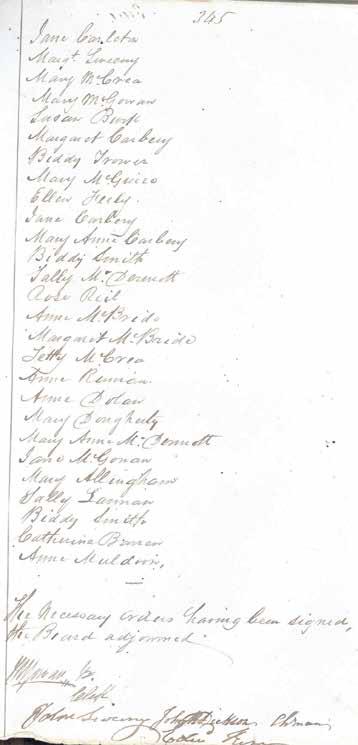 345
Jane Carleton
Margt. Sweeny
Mary McCrea
Mary McGowan
Susan Burk
Margaret Carbery
Biddy Trower
Mary McGuire
Ellen Feely
Jane Carbery
Mary Anne Carbery
Biddy Smith
Sally McDermott
Rose Reil
Anne McBride
Margaret McBride
Letty McCrea
Anne
Anne Dolan
Mary Dougherty
Mary Anne McDermott
Jane McGowan
Mary Allingham
Sally Lannan
Biddy Smith
Catherine
Anne Muldoon,
The Necessary orders having been signed,
the Board adjourned
Clerk
John Sweeny Chairman